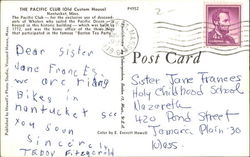 THE PACIFIC CLUB (Old Custom House)
Nantucket, Mass.
The Pacific Club — for the exclusive use of descend-
ants of Whalers who sailed the Pacific Ocean — is
housed in this historic building which was built in
1772, and was the home office of the three ships
that participated in the famous "Boston Tea Party."
P4952
Post Card
Dear Sister
Jane Frances,
we are riding
Bikes in
nantucket see
you soon
Sincerely,
Sister Jane Frances
Holy Childhood School
Nazareth
420 Pond Street
Jamaica Plain 30
Mass.
Color by E. Everett Howell